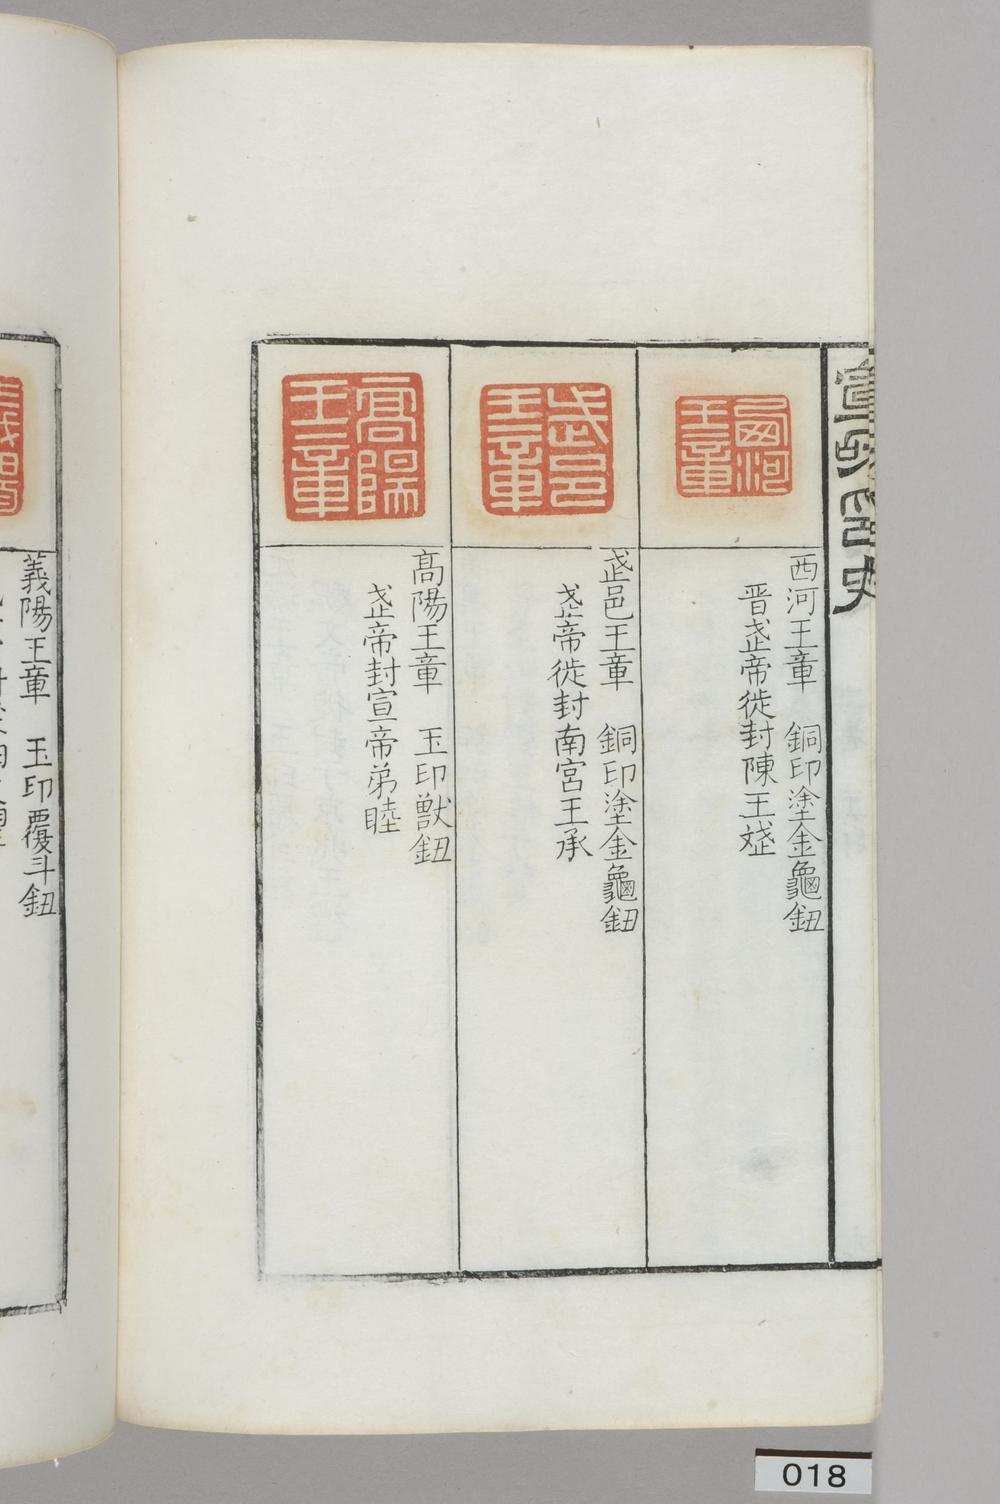 宣和印史
西河王章
西河王章　銅印塗金龜鈕
晋武帝徙封陳王斌
武邑王章
武邑王章　銅印塗金龜鈕
武帝徙封南宮王承
高陽王章
高陽王章　玉印獸鈕
武帝封宣帝弟睦
義陽王章　玉印覆斗鈕
018